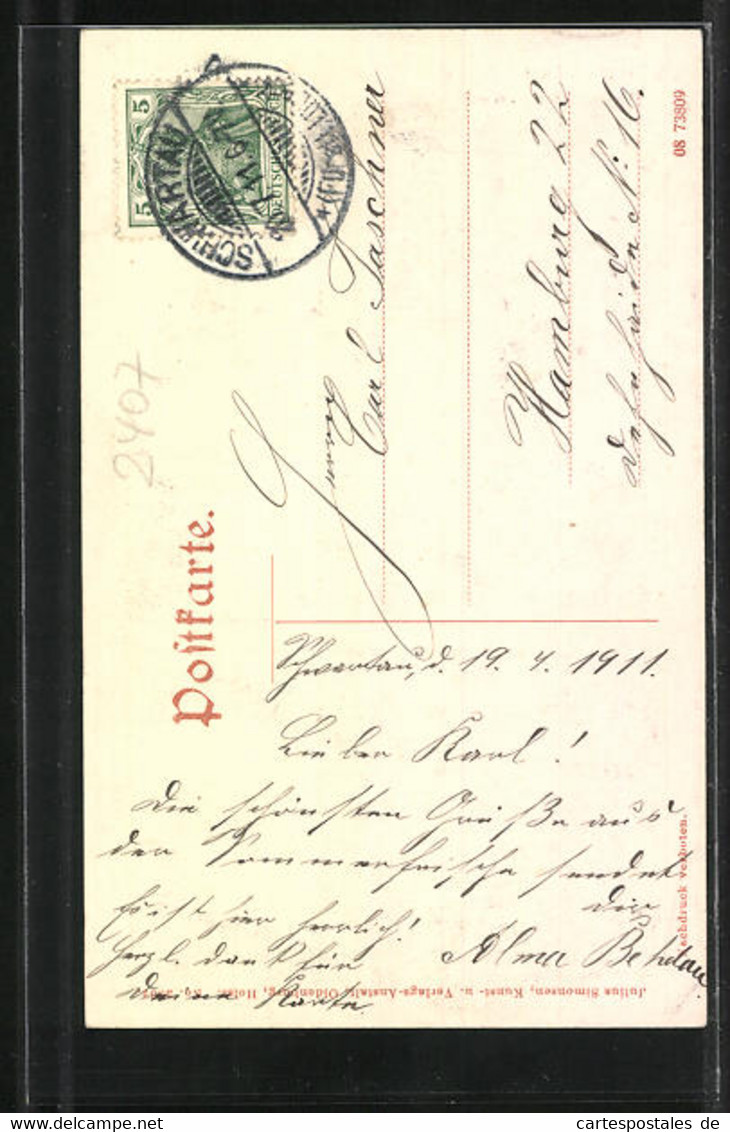 5
5
SCHWARTAU
Postkarte.
2407
Herrn
Carl Paschner
Hamburg 22
Dehnhaide No. 16.
08 73809
Schwartau, d. 19. 7. 1911.
Lieber Karl!
Die schönsten Grüße aus
der Sommerfrische sendet
dir
Alma
Es ist hier herrlich!
Herzl. dank für
deine Karte
Nachdruck verboten.
Julius Simonsen, Kunst- u. Verlags-Anstalt, Oldenburg, Holst.
www.cartespostales.de
cartespostales de